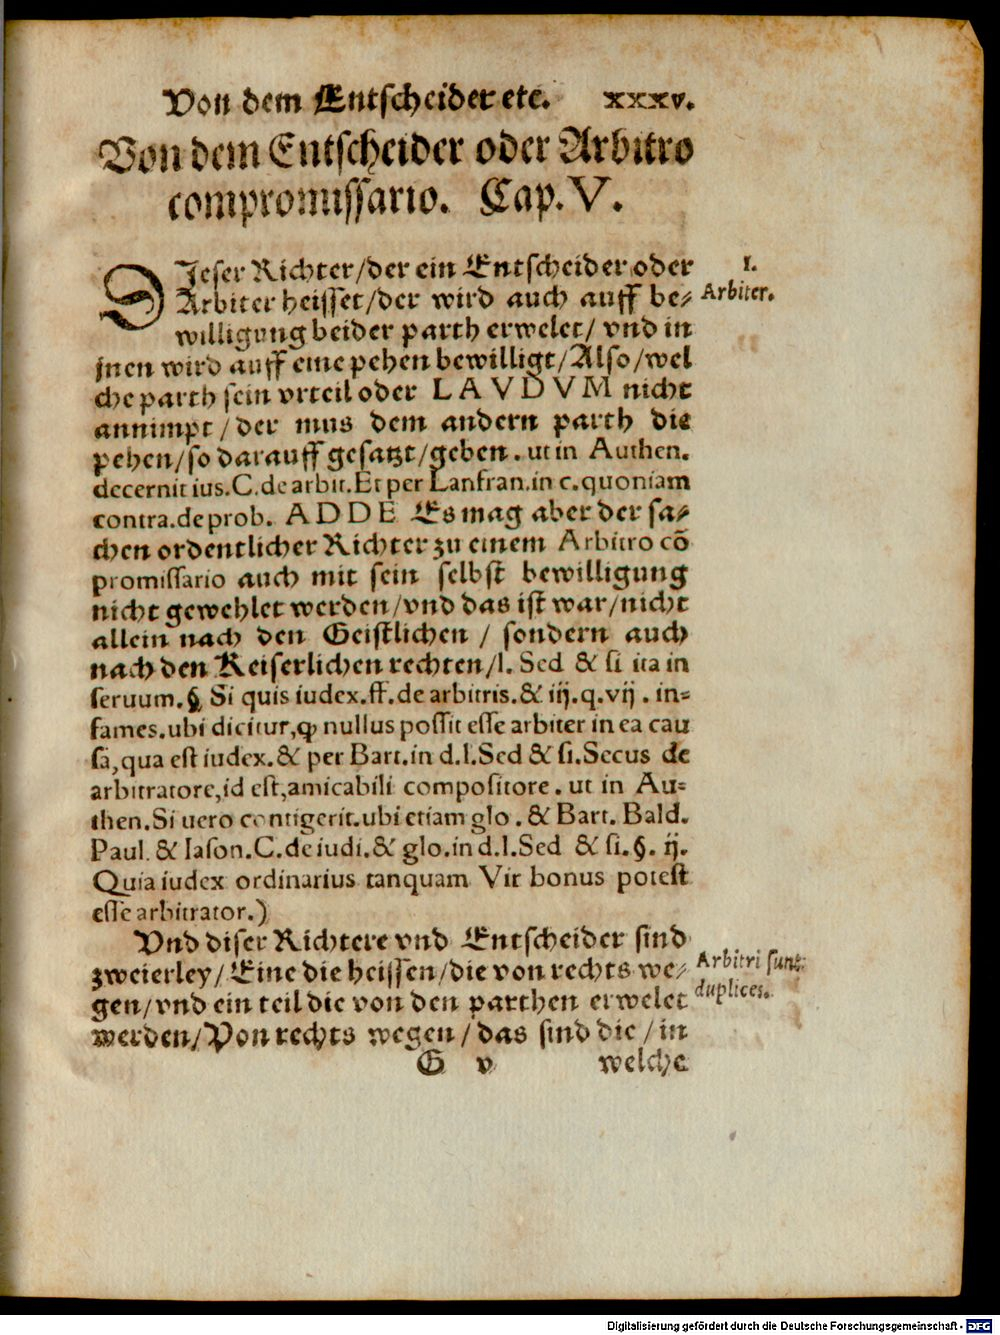 Von dem Entscheider etc. xxxv.
Von dem Entscheider oder Arbitro
compromissario. Cap. V.
DIeser Richter/der ein Entscheider oder
Arbiter heisset/der wird auch auff be⸗
willigung beider parth erwelet/ vnd in
jnen wird auff eine pehen bewilligt/Also/wel
che parth sein vrteil oder LAVDVM nicht
annimpt/der mus dem andern parth die
pehen/so darauff gesatzt/geben. ut in Authen.
decernit ius.C.de arbit.Et per Lanfran.in c.quoniam
contra.de prob. ADDE Es mag aber der sa⸗
chen ordentlicher Richter zu einem Arbitro cō
promissario auch mit sein selbst bewilligung
nicht gewehlet werden/vnd das ist war/nicht
allein nach den Geistlichen / sondern auch
nach den Keiserlichen rechten/l. Sed & si ita in
seruum.§. Si quis iudex.ff.de arbitris.& iij.q.vij. in=
fames.ubi dicitur,ꝙ nullus possit esse arbiter in ea cau
sa,qua est iudex.& per Bart.in d.l.Sed & si.Secus de
arbitratore,id est,amicabili compositore. ut in Au=
then.Si uero contigerit.ubi etiam glo. & Bart. Bald.
Paul. & Iason.C.de iudi.& glo.in d.l.Sed & si.§. ij.
Quia iudex ordinarius tanquam Vir bonus potest
esse arbitrator.)
Vnd diser Richtere vnd Entscheider sind
zweierley/Eine die heissen/die von rechts we⸗
gen/vnd ein teil die von den parthen erwelet
werden/Von rechts wegen/das sind die/in
G v welche
1.
Arbiter.
Arbitri sunt
duplices.
Digitalisierung gefördert durch die Deutsche Forschungsgemeinschaft - DFG